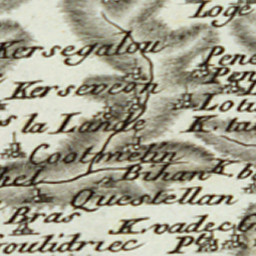 Loge
Kersegalou
Pene
Pen
Kerseveon
Lou
la Lande
K. ta
Cootmelin
hel
Bihan
K. b
Questellan
Bras
K. vadec
Goulidriec
Pe